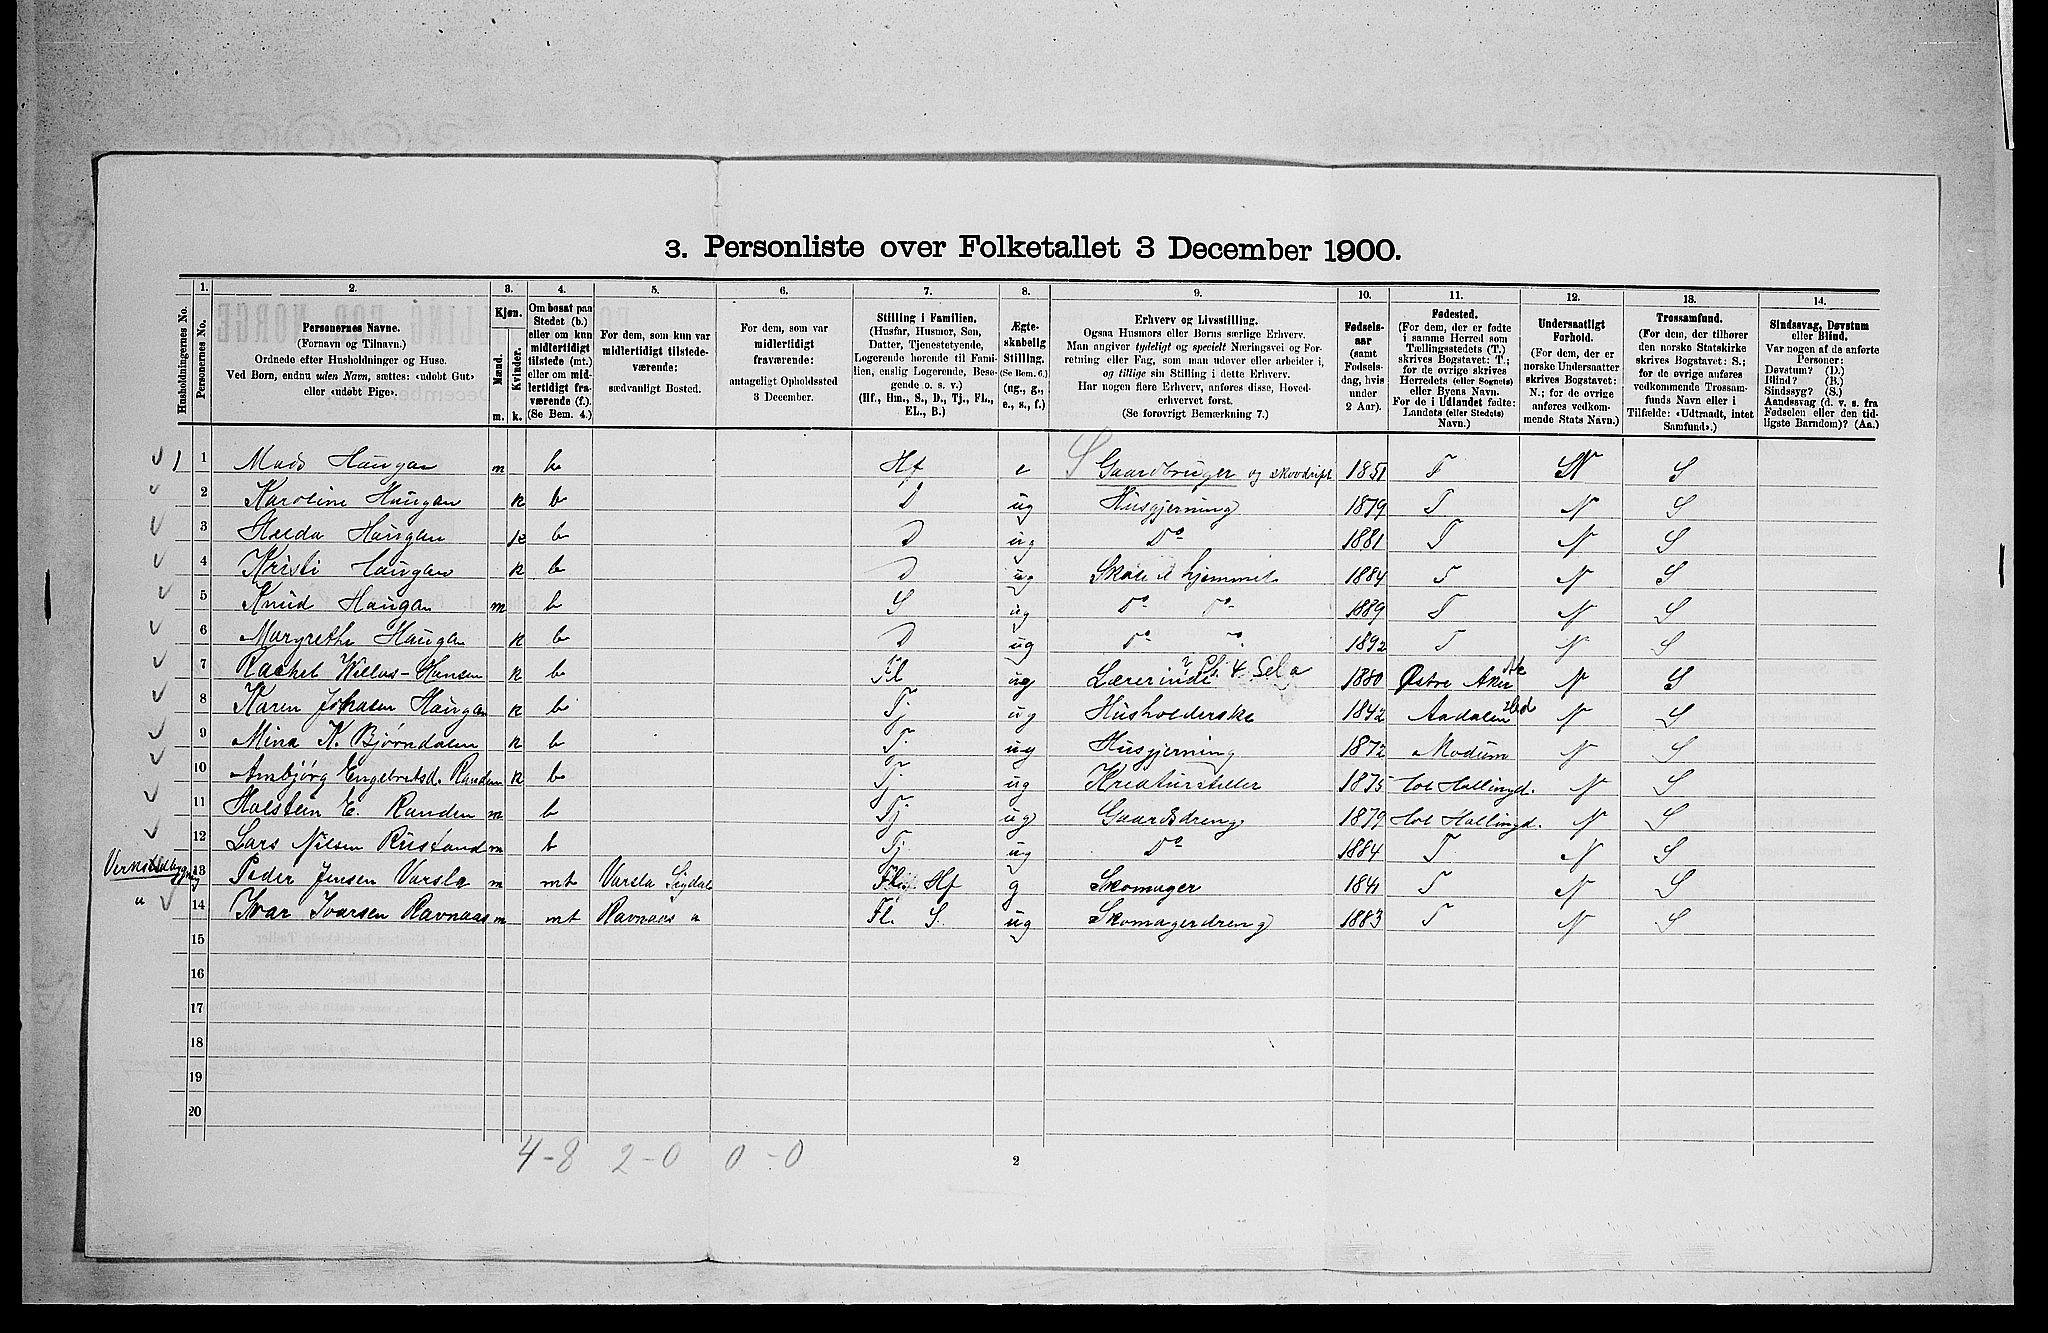 3. Personliste over Folketallet 3 December 1900.
Husholdningernes No.
1. Personernes No.
2. Personernes Navne. (Fornavn og Tilnavn.) Ordnede efter Husholdninger og Huse. Ved Børn, endnu uden Navn, sættes: «udøbt Gut» eller «udøbt Pige».
3. Kjøn. Mænd. m. Kvinder. k.
4. Om bosat paa Stedet (b.) eller om kun midlertidigt tilstede (mt.) eller om midlertidigt fraværende (f.). (Se Bem. 4.)
5. For dem, som kun var midlertidigt tilstedeværende: sædvanligt Bosted.
6. For dem, som var midlertidigt fraværende: antageligt Opholdssted 3 December.
7. Stilling i Familien. (Husfar, Husmor, Søn, Datter, Tjenestetyende, Logerende hørende til Familien, enslig Logerende, Besøgende o. s. v.) (Hf., Hm., S., D., Tj., FL., EL., B.)
8. Ægteskabelig Stilling. (Se Bem. 6.) (ug., g., e., s., f.)
9. Erhverv og Livsstilling. Ogsaa Husmors eller Børns særlige Erhverv. Man angiver tydeligt og specielt Næringsvei og Forretning eller Fag, som man udover eller arbeider i, og tillige sin Stilling i dette Erhverv. Har nogen flere Erhverv, anføres disse, Hovederhvervet først. (Se forøvrigt Bemærkning 7.)
10. Fødselsaar (samt Fødselsdag, hvis under 2 Aar).
11. Fødested. (For dem, der er fødte i samme Herred som Tællingsstedets (T.) skrives Bogstavet: T.; for de øvrige skrives Herredets (eller Sognets) eller Byens Navn. For de i Udlandet fødte: Landets (eller Stedets) Navn.)
12. Undersaatligt Forhold. (For dem, der er norske Undersaatter skrives Bogstavet: N.; for de øvrige anføres vedkommende Stats Navn.)
13. Trossamfund. (For dem, der tilhører den norske Statskirke skrives Bogstavet: S.; for de øvrige anføres vedkommende Trossamfunds Navn eller i Tilfælde: «Udtraadt, intet Samfund».)
14. Sindssvag, Døvstum eller Blind. Var nogen af de anførte Personer: Døvstum? (D.) Blind? (B.) Sindssyg? (S.) Aandssvag (d. v. s. fra Fødselen eller den tidligste Barndom)? (Aa.)
1 1 Mads Haugan m b Hf e S Gaardbruger og skovdrift 1851 T N S
2 Karoline Haugan k b D ug Husgjerning 1879 T N S
3 Helda Haugan k b D ug Do 1881 T N S
4 Kristi Haugan k b D ug Skole i hjemmet 1884 T N S
5 Knud Haugan m b S ug Do Do 1889 T N S
6 Margrethe Haugan k b D ug Do 1892 T N S
7 Rachel Willas-Hansen k b Fl ug Lærerinde 1880 Østre Aker N S
8 Karen Johnsen Haugan k b Tj ug Husholderske 1842 Aadalen N S
9 Mina K. Bjørndalen k b Tj ug Husgjerning 1872 Modum N S
10 Ambjørg Engebretsd. Randen k b Tj ug Kreatursteller 1875 Hol Hallingd. N S
11 Holstein E. Randen m b Tj ug Gaardsdreng 1879 Hol Hallingd. N S
12 Lars Nilsen Rustand m b Tj ug Do 1884 T N S
13 Peder Jensen Varsla m mt Varsla Sigdal Fl Hf g Skomager 184 T N S
" 14 Ivar Ivarsen Ravnaas m mt Ravnaas " Fl. S. ug Skomagerdreng 1883 T N S
15
16
17
18
19
20
4-8 2-0 0-0
2